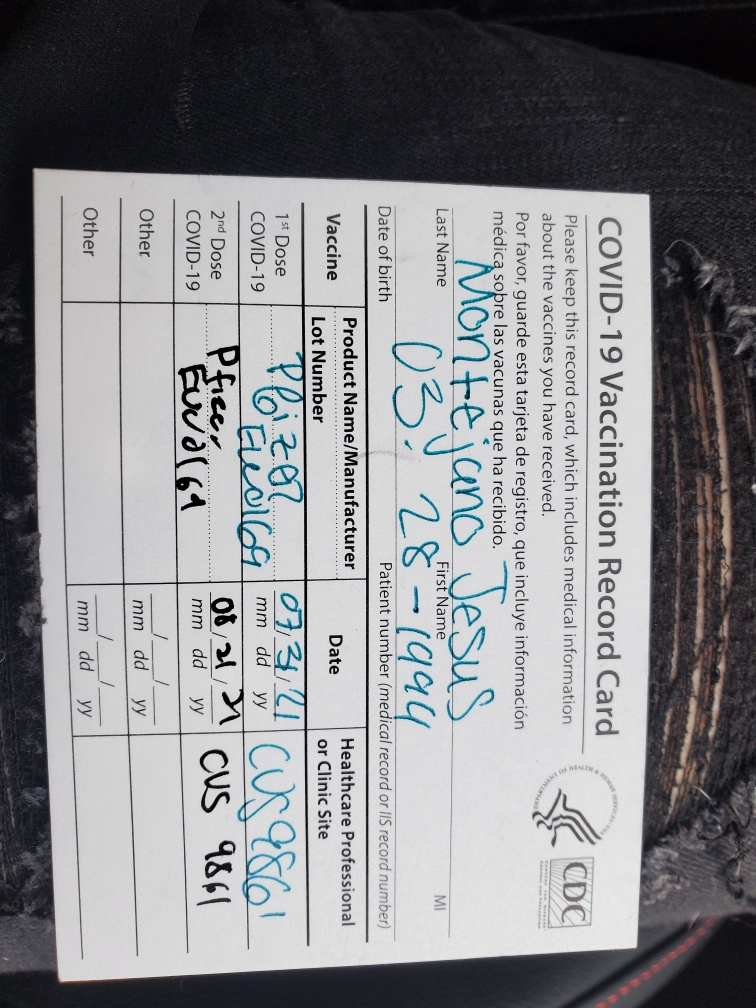 COVID-19 Vaccination Record Card
Please keep this record card, which includes medical information
about the vaccines you have received.
Por favor, guarde esta tarjeta de registro, que incluye información
médica sobre las vacunas que ha recibido.
CDC
Montejano Jesus
Last Name First Name MI
03. 28-1994
Date of birth Patient number (medical record or IIS record number)
Vaccine Product Name/Manufacturer Date Healthcare Professional
Lot Number or Clinic Site
1st Dose
COVID-19
Pfizer 07/31/21 CVS 9861
mm dd yy
2nd Dose
COVID-19
Pfizer 08/21/21 CVS 9861
mm dd yy
Other
mm dd yy
Other
mm dd yy